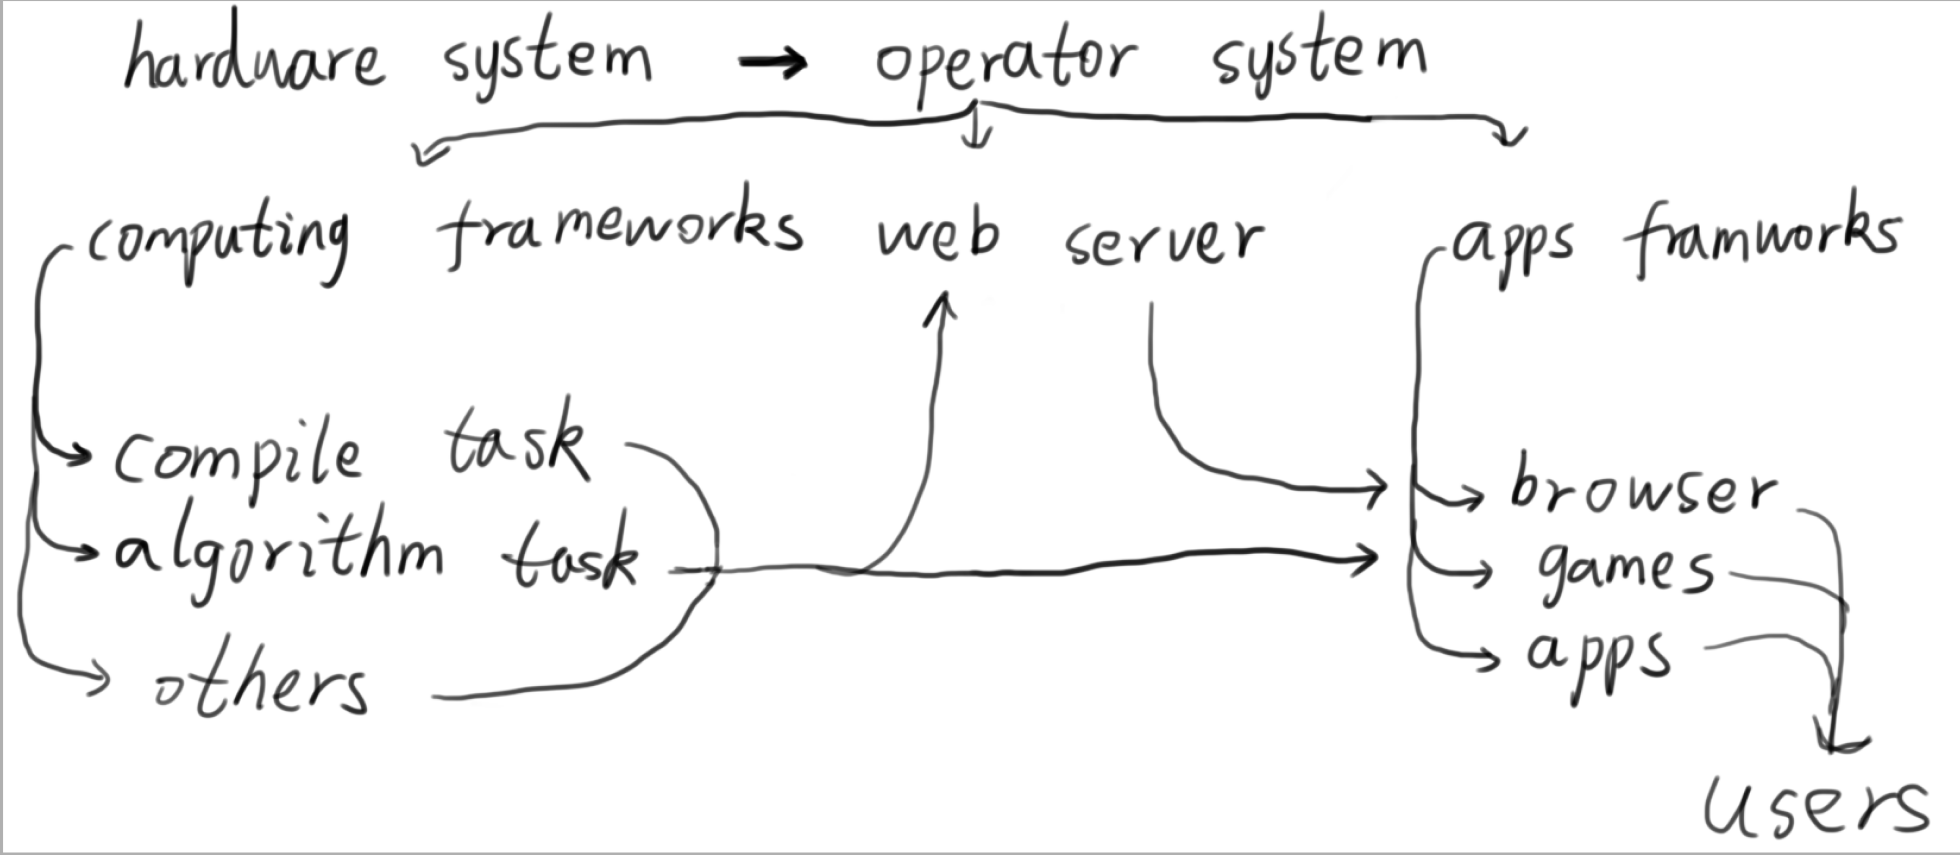 hardware system → operator system
computing frameworks web server apps framworks
compile task
browser
algorithm task
games
others
apps
users